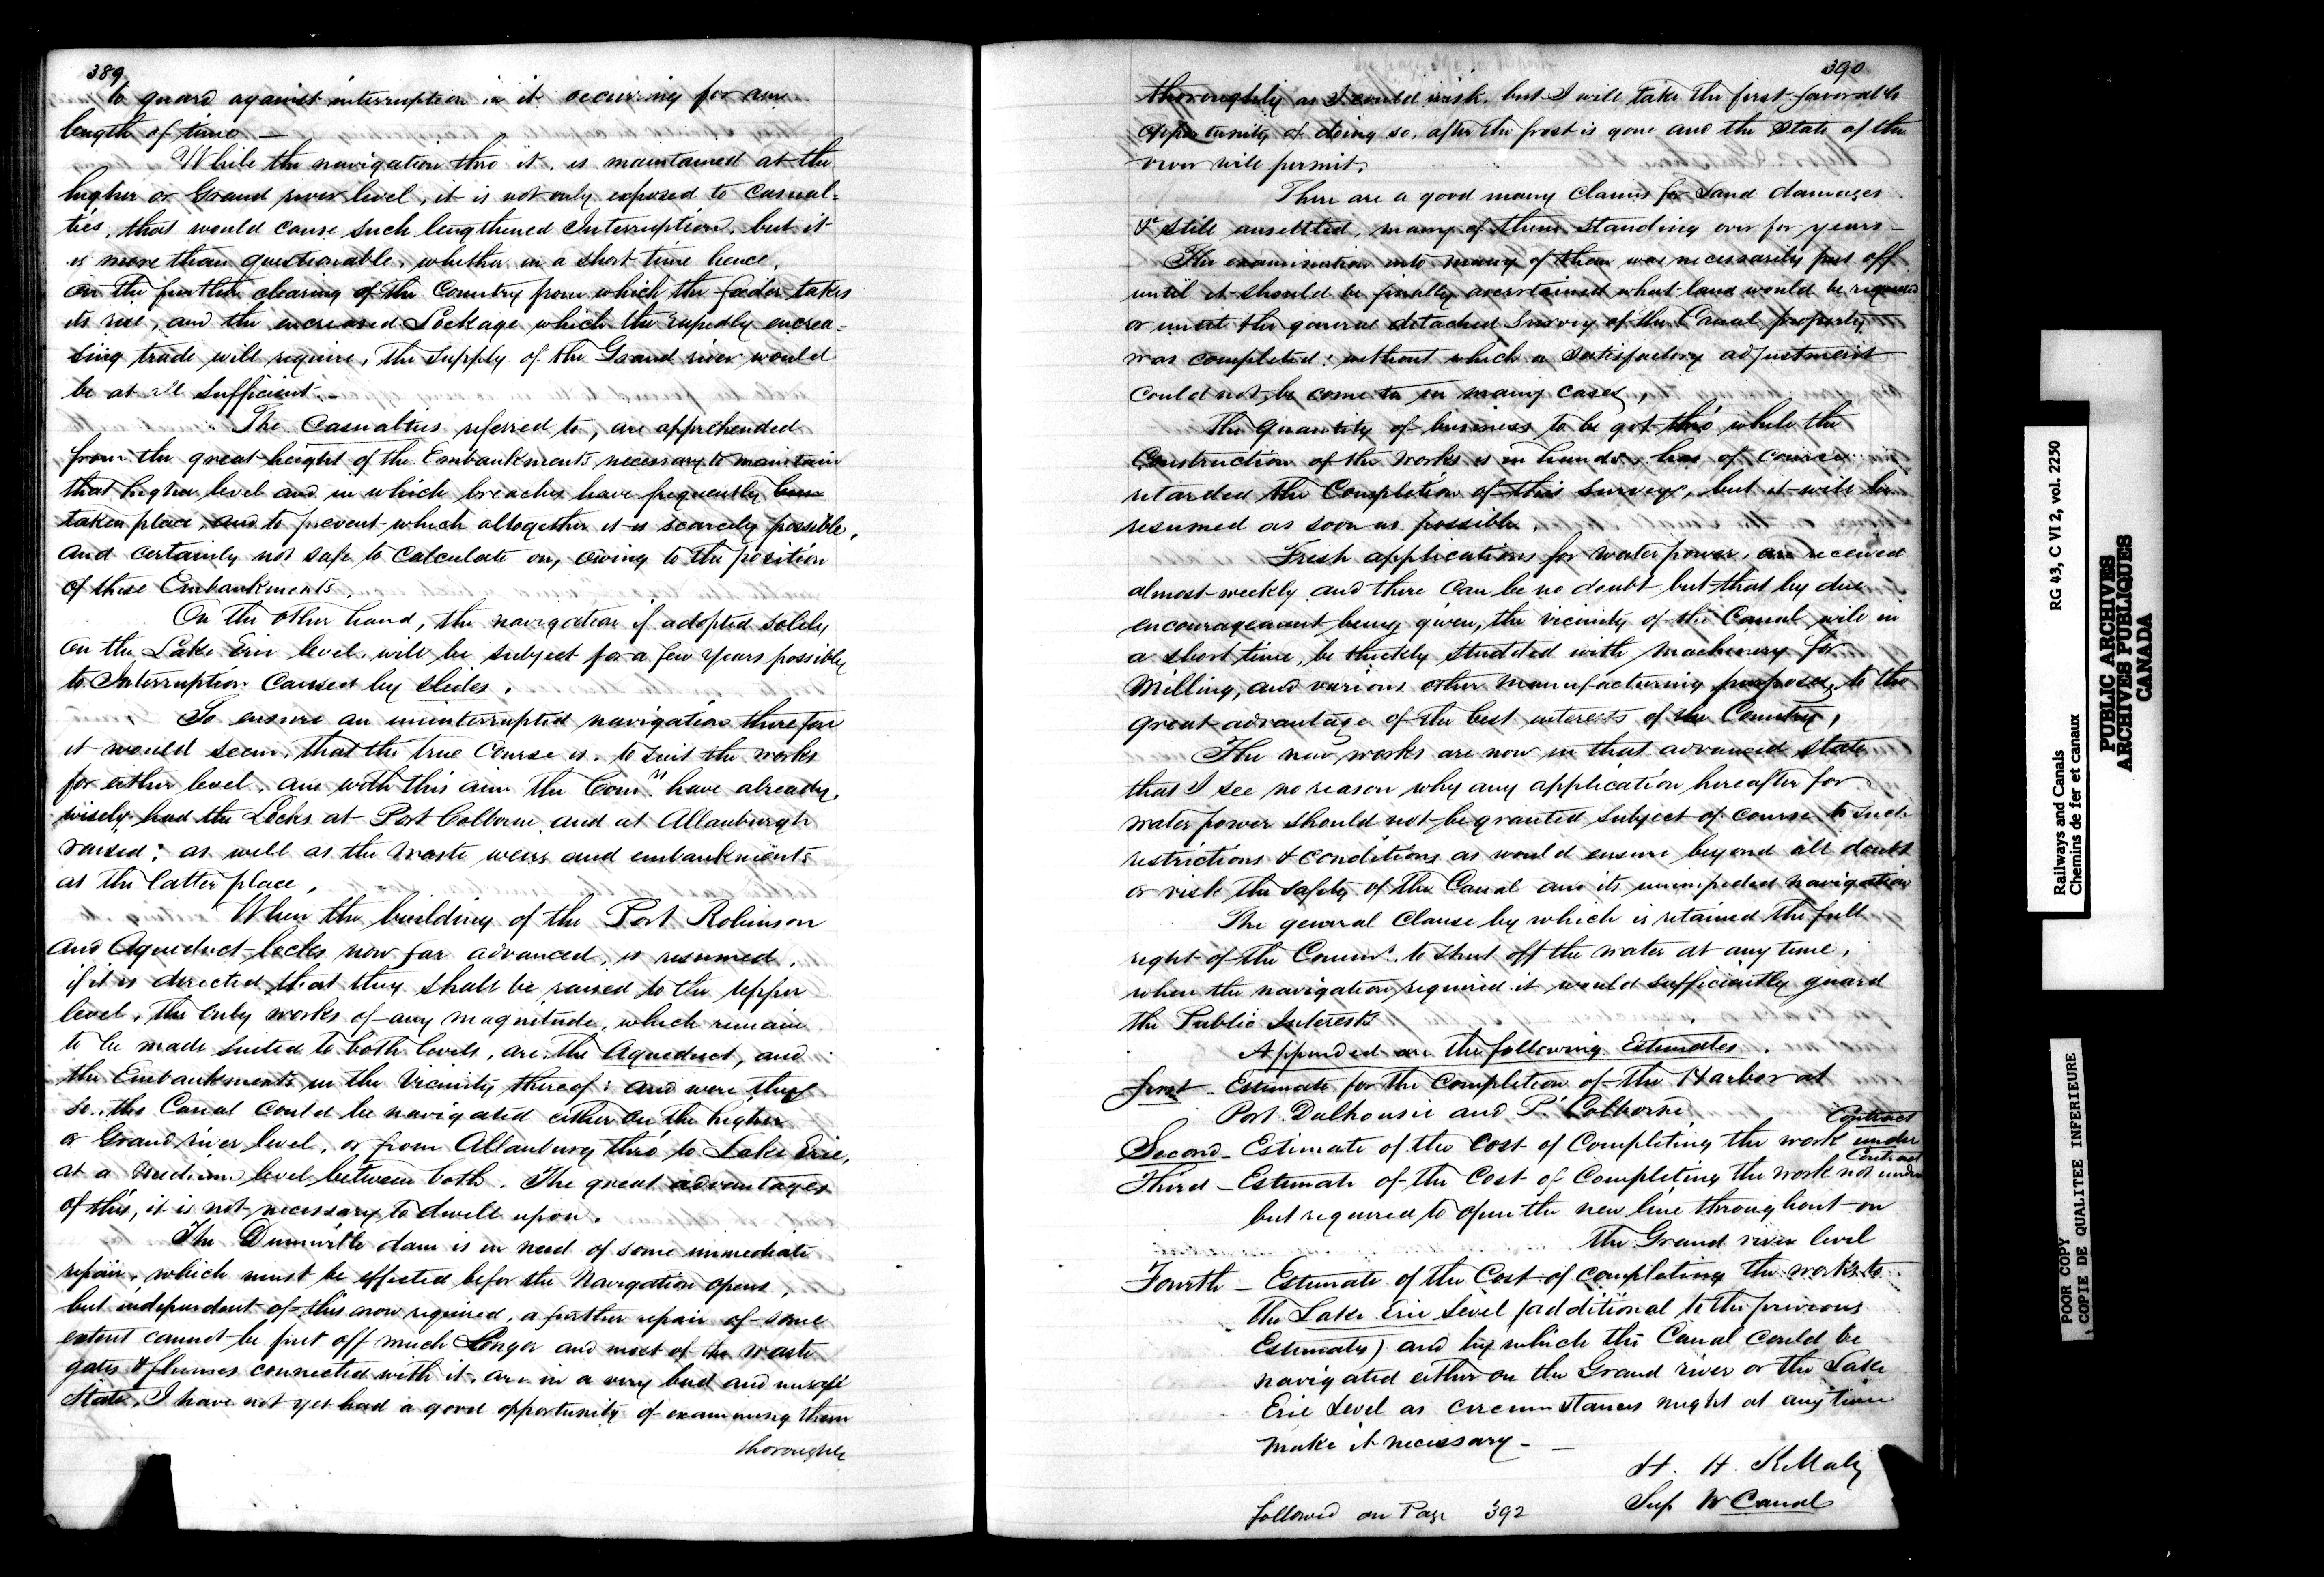 389
to guard against interruption in it occurring for any
length of time —
While the navigation thro it, is maintained at the
higher or Grand river level, it is not only exposed to casual-
ties, that would cause such lengthened Interruption, but it
is more than questionable, whether in a short time hence,
on the further clearing of the Country from which the feeder takes
its rise, and the encreased Lockage which the rapidly encrea-
sing trade will require, the supply of the Grand river would
be at all sufficient.—
The Casualties referred to, are apprehended
from the great height of the Embankments necessary to maintain
that higher level and in which breaches have frequently been
taken place, and to prevent which altogether it is scarcely possible,
and certainly not safe to calculate on, owing to the position
of these Embankments.
On the other hand, the navigation if adopted solely
on the Lake Erie level, will be subject for a few years possibly
to Interruption Caused by slides.
To ensure an uninterrupted navigation therefore
it would seem, that the true Course is, to suit the works
for either level, and with this aim the Comrs have already,
wisely had the Locks at Port Colborne and at Allanburgh
raised: as well as the waste weirs and embankments
at the latter place,
When the building of the Port Robinson
and Aqueduct locks now far advanced, is resumed,
if it is directed that they shall be raised to the upper
level, the only works of any magnitude, which remain
to be made suited to both levels, are the Aqueduct, and
the Embankments in the Vicinity thereof: and were they
so, the Canal could be navigated either on the higher
or Grand river level, or from Allanburg thro' to Lake Erie,
at a medium level between both. The great advantages
of this, it is not necessary to dwell upon.
The Dunnville dam is in need of some immediate
repair, which must be effected befor the Navigation opens,
but independent of this now required, a further repair of some
extent cannot be put off much Longer and most of the waste
gates & flumes connected with it, are in a very bad and unsafe
State, I have not yet had a good opportunity of examining them
thoroughly
390
thoroughly as I could wish, but I will take the first favorable
opportunity of doing so, after the frost is gone and the State of the
river will permit.
There are a good many Claims for Land damages
&c still unsettled, many of them standing over for years—
The examination into many of them was necessarily put off
until it should be finally ascertained what land would be required
or until the general detached Survey of the Canal property
was completed: without which a satisfactory adjustment
could not be come to in many cases,
The quantity of business to be got thro' while the
Construction of the works is in hands has of Course
retarded the Completion of this survey, but it will be
resumed as soon as possible.
Fresh applications for water power, are received
almost weekly and there Can be no doubt but that by due
encouragement being given, the vicinity of the Canal will in
a short time, be thickly studded with machinery for
Milling, and various other manufacturing purposes, to the
great advantage of the best interests of the Country,
The new works are now in that advanced state
that I see no reason why any application hereafter for
water power should not be granted subject of course to such
restrictions & conditions as would ensure beyond all doubt
or risk the safety of the Canal and its unimpeded navigation
The general Clause by which is retained the full
right of the Commrs. to shut off the water at any time,
when the navigation required it would sufficiently guard
the Public Interests
Appended are the following Estimates.
first — Estimate for the Completion of the Harbor at
Port Dalhousie and Pt Colborne
Second — Estimate of the Cost of Completing the work under Contract
Third — Estimate of the Cost of Completing the work not under Contract
but required to open the new line throughout on
the Grand river level
Fourth — Estimate of the Cost of completing the works to
the Lake Erie Level (additional to the previous
Estimates) and by which the Canal could be
navigated either on the Grand river or the Lake
Erie Level as circumstances might at any time
make it necessary —
H. H. Killaly
Sup W Canal
followed on Page 392
Railways and Canals RG 43, C VI 2, vol. 2250
Chemins de fer et canaux
PUBLIC ARCHIVES
ARCHIVES PUBLIQUES
CANADA
POOR COPY
COPIE DE QUALITEE INFERIEURE